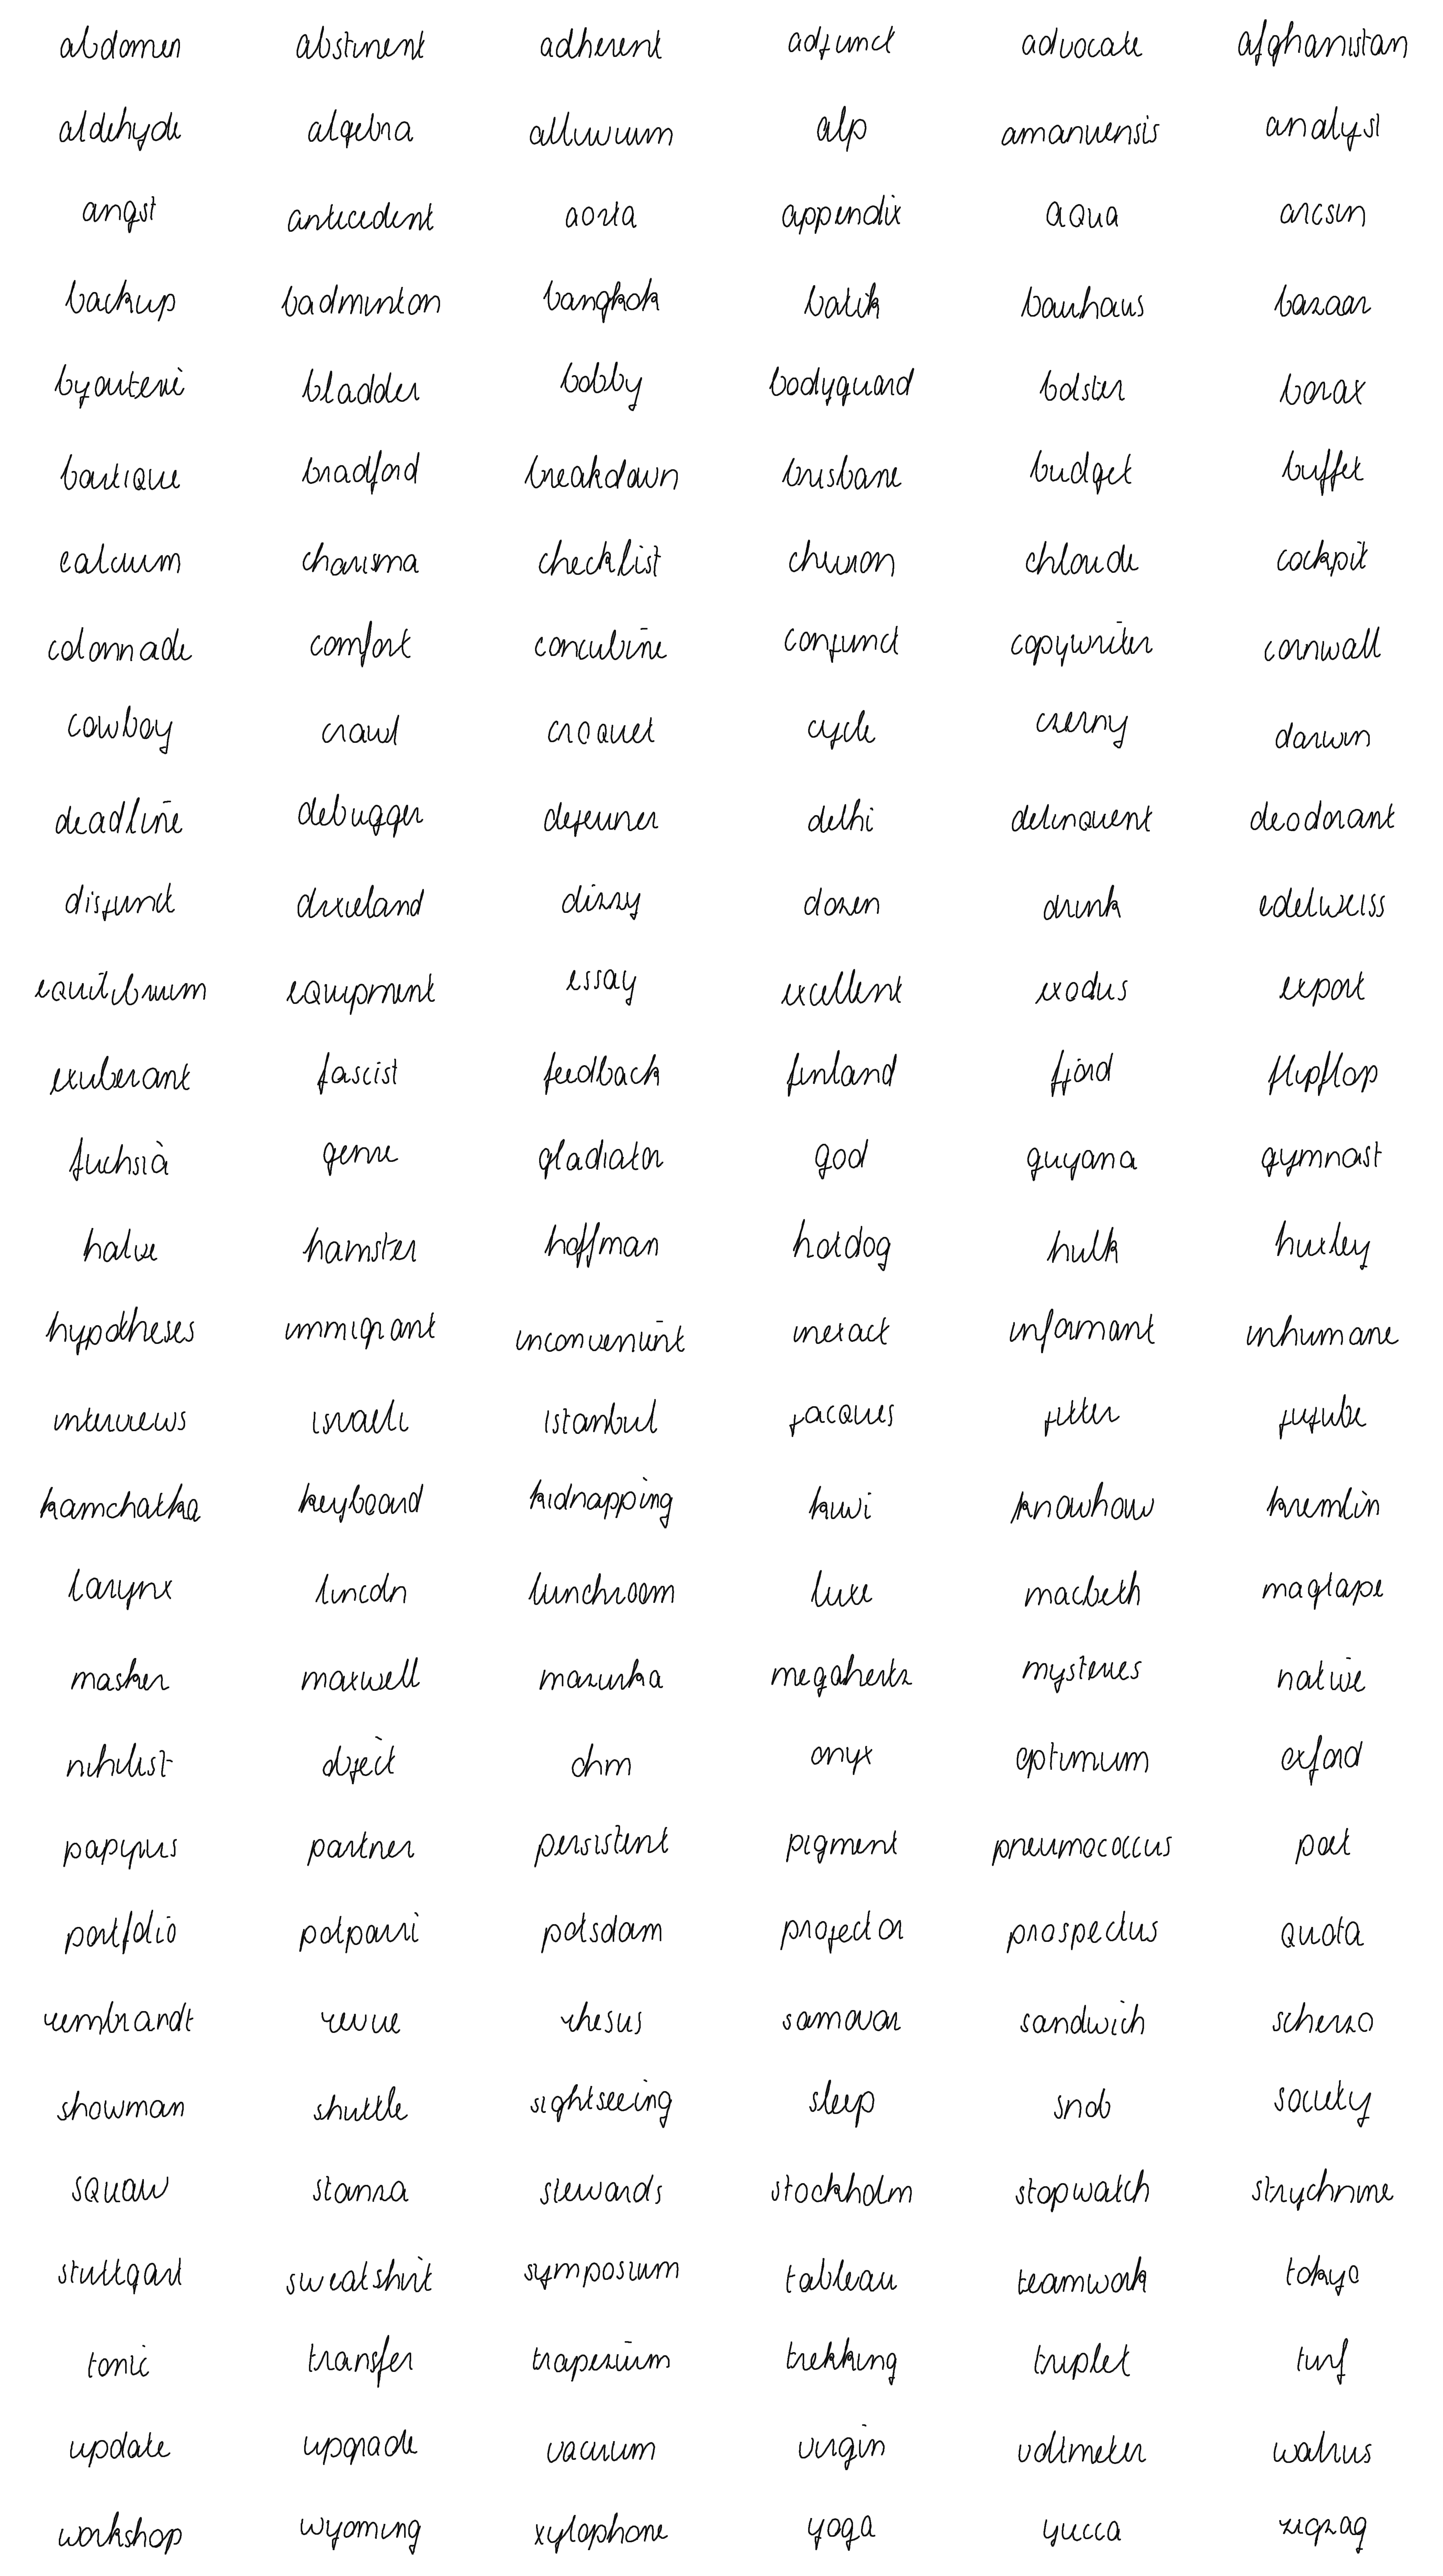 abdomen abstinent adherent adjunct advocate afghanistan
aldehyde algebra alluvium alp amanuensis analyst
angst antecedent aorta appendix aqua arcsin
backup badminton bangkok batik bauhaus bazaar
byouterie bladder bobby bodyguard bolster borax
boutique bradford breakdown brisbane budget buffet
calcium charisma checklist chevron chloride cockpit
colonnade comfort concubine conjunct copywriter cornwall
cowboy crawl croquet cycle czerny darwin
deadline debugger dejeuner delhi delinquent deodorant
disjunct dixieland dizzy dozen drink edelweiss
equilibrium equipment essay excellent exodus export
exuberant fascist feedback finland fjord flipflop
fuchsia genre gladiator god guyana gymnast
halve hamster hoffman hotdog hulk huxley
hypotheses immigrant inconvenient inexact informant inhumane
interviews israeli istanbul jacques jitter jujube
kamchatka keyboard kidnapping kiwi knowhow kremlin
larynx lincoln lunchroom luxe macbeth magtape
masker maxwell mazurka megahertz mysteries native
nihilist object ohm onyx optimum oxford
papyrus partner persistent pigment pneumococcus poet
portfolio potpourri potsdam projector prospectus quota
rembrandt revue rhesus samovar sandwich scherzo
showman shuttle sightseeing sleep snob society
squaw stanza stewards stockholm stopwatch strychnine
stuttgart sweatshirt symposium tableau teamwork tokyo
tonic transfer trapezium trekking triplet turf
update upgrade vacuum virgin voltmeter walrus
workshop wyoming xylophone yoga yucca zigzag